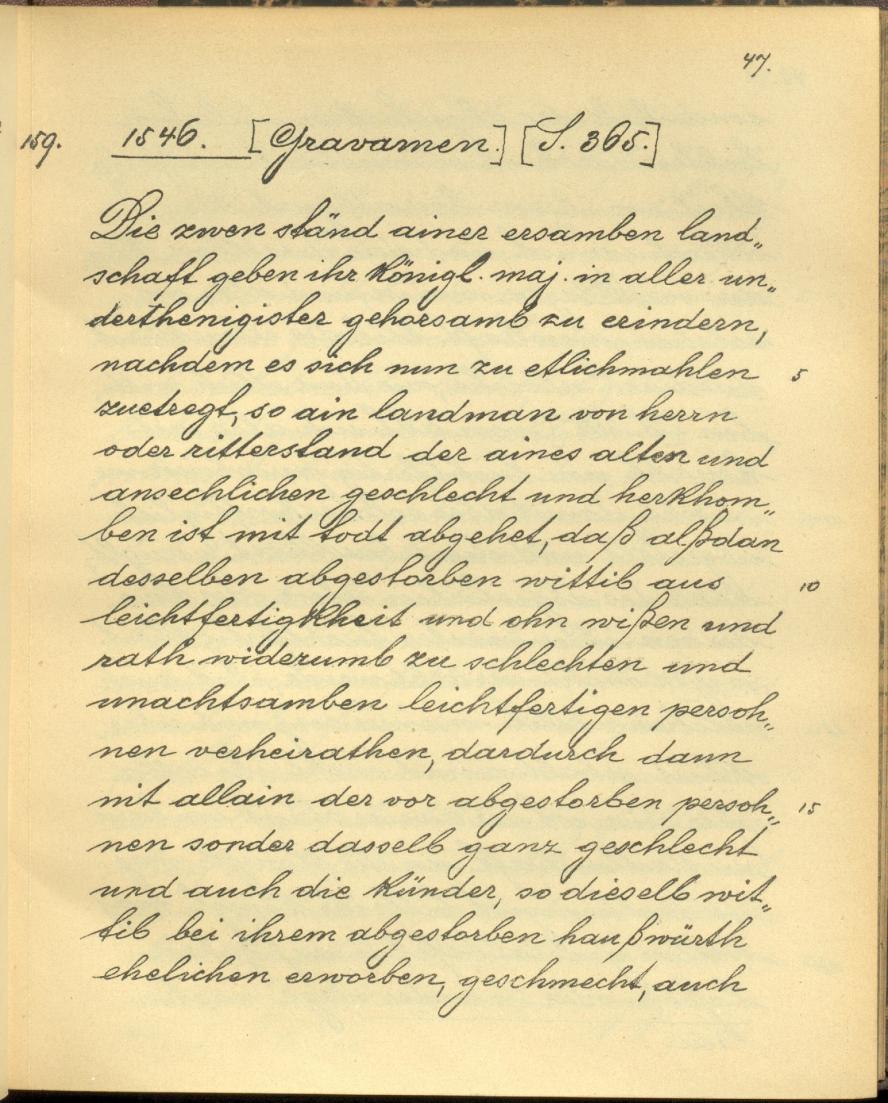 47.
159. 1546. [Gravamen.] [S. 365.]
Die zwen ständ ainer ersamben land„
schaft geben ihr königl. maj. in aller un„
derthenigister gehorsamb zu erindern,
nachdem es sich nun zu etlichmahlen 5
zuetregt, so ain landman von herrn
oder ritterstand der aines alten und
ansechlichen geschlecht und herkhom„
ben ist mit todt abgehet, daß alßdan
desselben abgestorben wittib aus 10
leichtfertigkheit und ohn wißen und
rath widerumb zu schlechten und
unachtsamben leichtfertigen persoh„
nen verheirathen, dardurch dann
nit allain der vor abgestorben persoh„ 15
nen sonder dasselb ganz geschlecht
und auch die künder, so dieselb wit„
tib bei ihrem abgestorben haußwürth
ehelichen erworben, geschmecht, auch